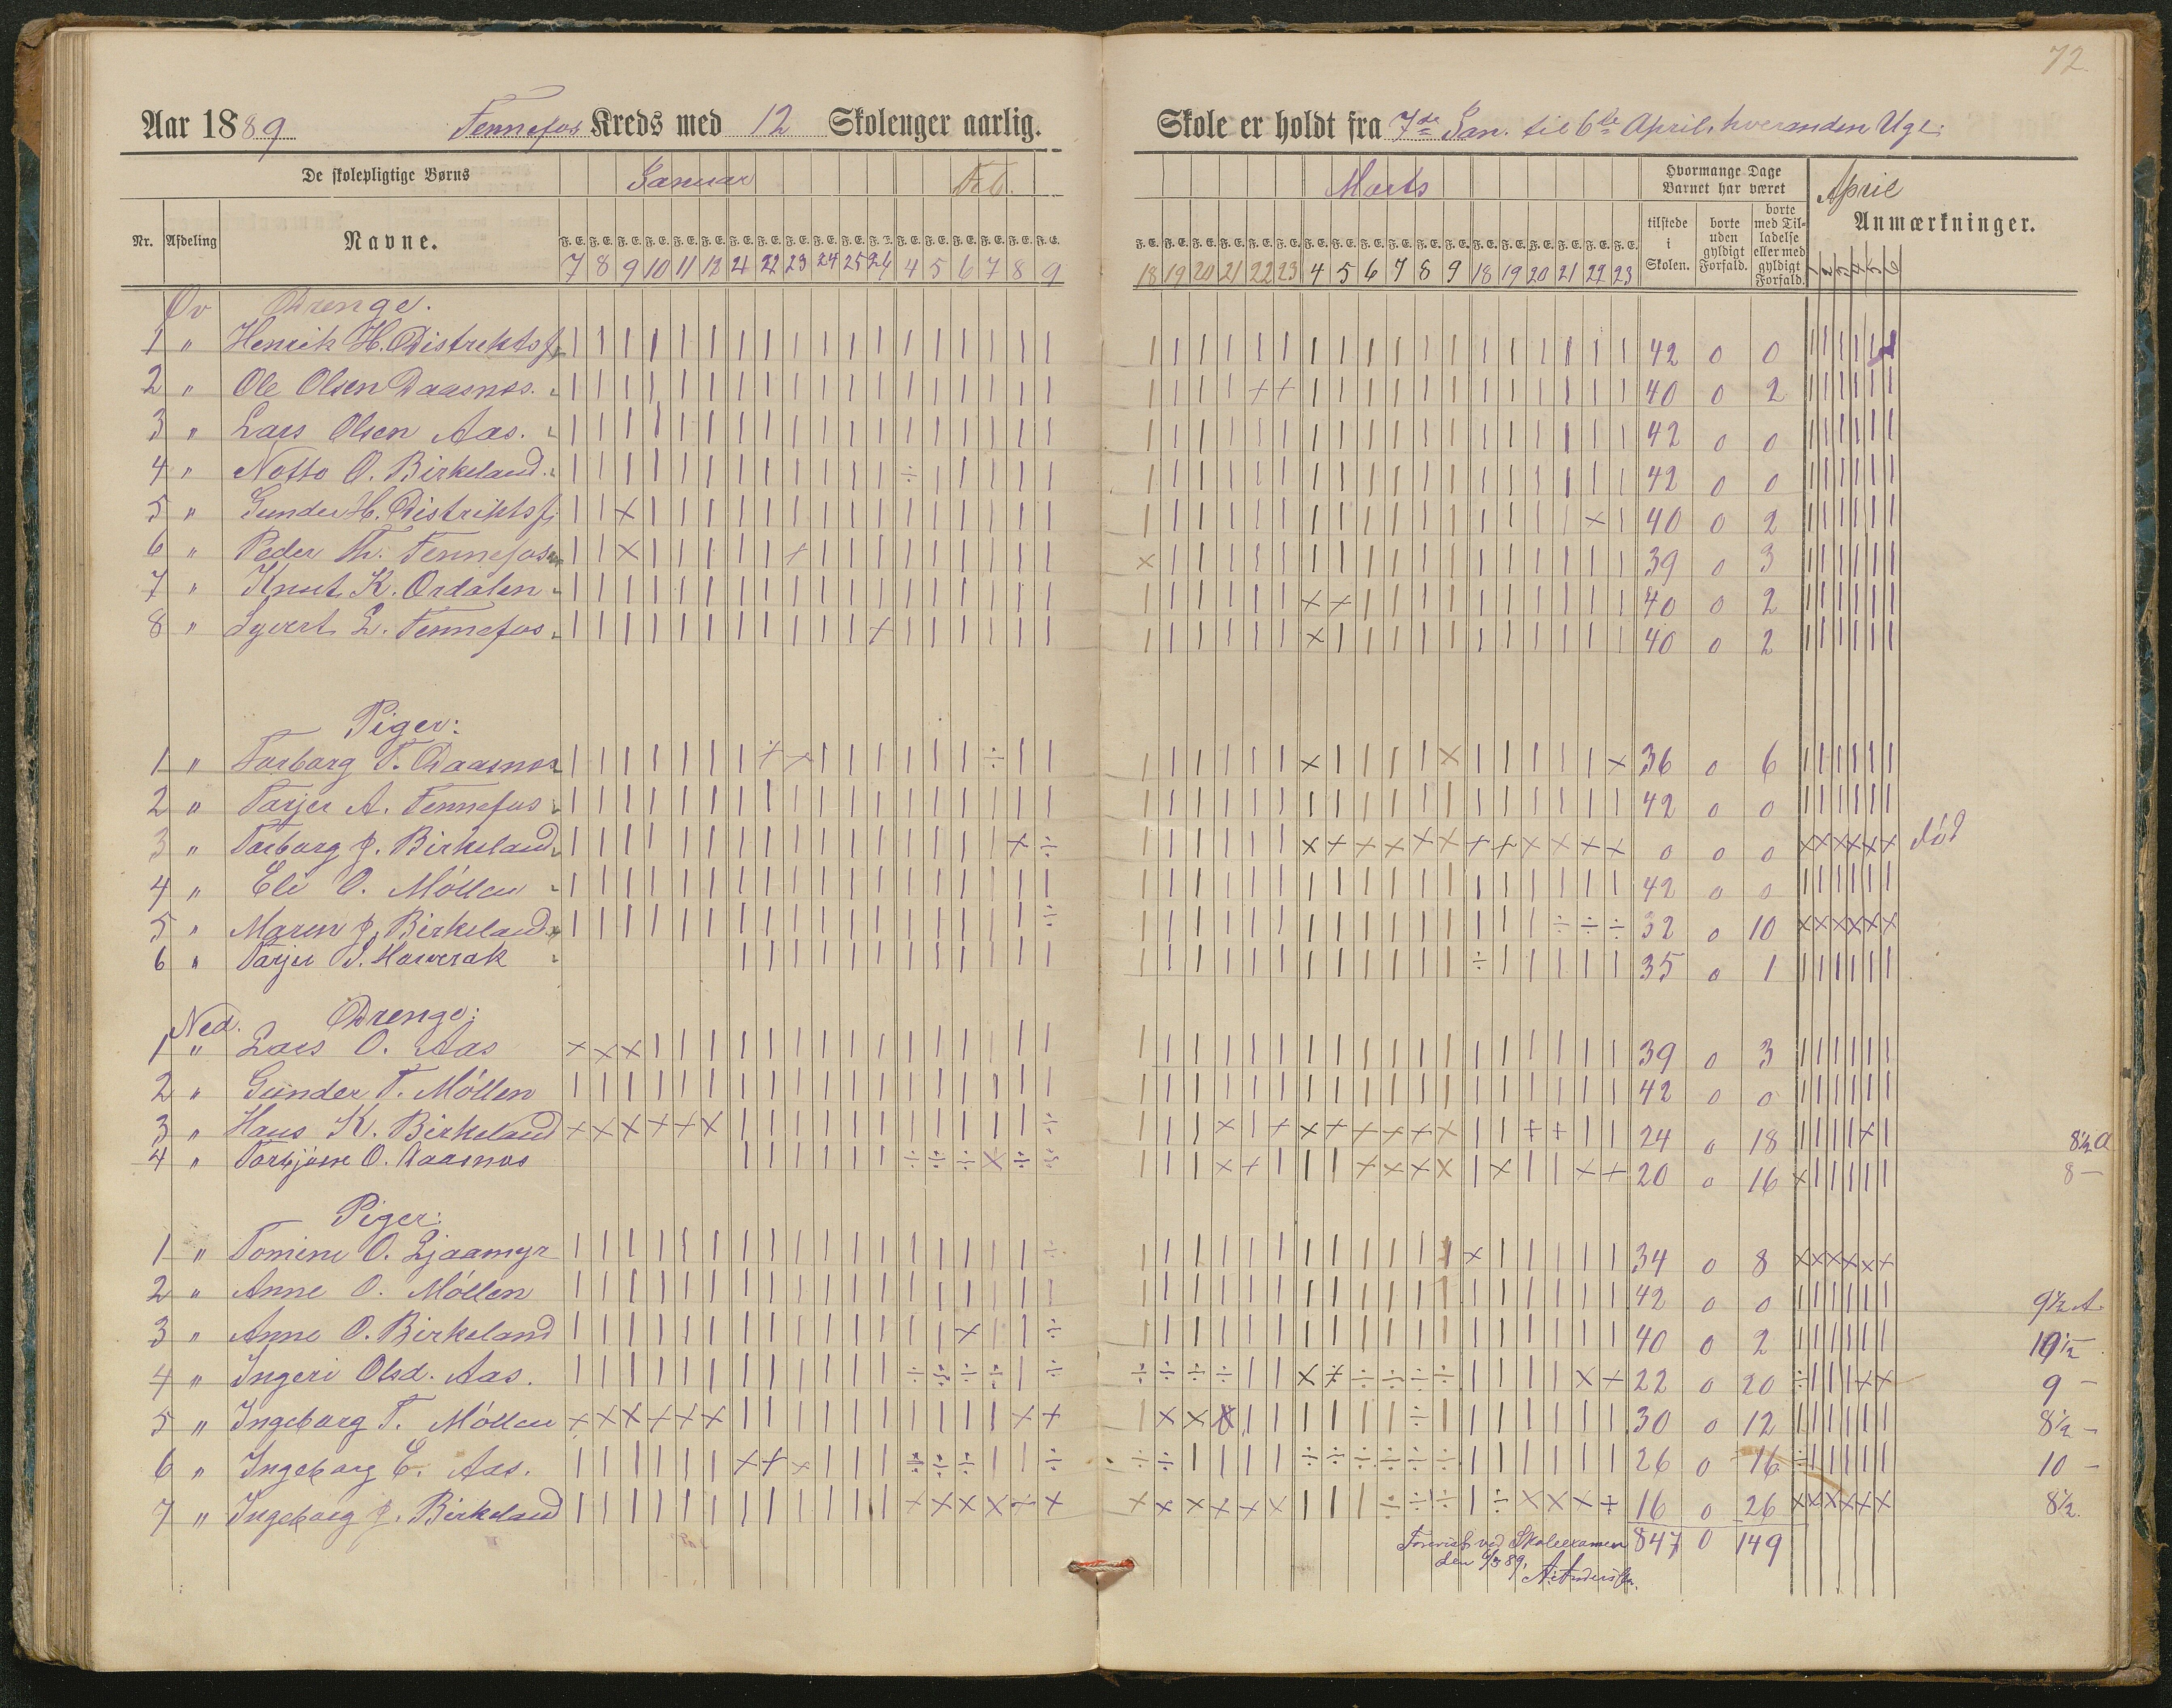 72.
Aar 1889 Fennefos Kreds med 12 Skoleuger aarlig. Skole er holdt fra 7de Jan. til 6te April, hveranden Uge.
De skolepligtige Børns Januar Feb. Marts Hvormange Dage Barnet har været April
Nr. Afdeling Navne. tilstede i Skolen. borte uden gyldigt Forfald. borte med Tilladelse eller med gyldigt Forfald. Anmærkninger.
F. E. F. E. F. E. F. E. F. E. F. E. F. E. F. E. F. E. F. E. F. E. F. E. F. E. F. E. F. E. F. E. F. E. F. E. F. E. F. E. F. E. F. E. F. E. F. E. F. E. F. E. F. E. F. E. F. E. F. E. F. E. F. E. F. E. F. E. F. E. F. E.
7 8 9 10 11 12 21 22 23 24 25 26 4 5 6 7 8 9 18 19 20 21 22 23 4 5 6 7 8 9 18 19 20 21 22 23 1 2 3 4 5 6
Øv Drenge.
1 " Henrik H. Distriktsf. 42 0 0
2 " Ole Olsen Daasnes. 40 0 2
3 " Lars Olsen Aas. 42 0 0
4 " Notto O. Birkeland. 42 0 0
5 " Gunder H. Distriktsf. 40 0 2
6 " Peder Th. Fennefos 39 0 3
7 " Knut K. Ordalen 40 0 2
8 " Syvert L. Fennefos 40 0 2
Piger:
1 " Torborg T. Daasnes 36 0 6
2 " Tarjer A. Fennefos 42 0 0
3 " Torborg J. Birkeland 0 0 0 død
4 " Eli O. Möllen 42 0 0
5 " Maren J. Birkeland 32 0 10
6 " Tarjer S. Haverak 35 0 1
Ned. Drenge:
1 " Lars O. Aas 39 0 3
2 " Gunder T. Möllen 42 0 0
3 " Hans K. Birkeland 24 0 18 8½ A
4 " Torbjörn O. Daasnes 20 0 16 8 –
Piger:
1 " Tomine O. Ljaamyr 34 0 8
2 " Anne O. Möllen 42 0 0 9½ A
3 " Anne O. Birkeland 40 0 2 10½ –
4 " Ingeri Olsd. Aas. 22 0 20 9 –
5 " Ingeborg T. Möllen 30 0 12 8½ –
6 " Ingeborg E. Aas. 26 0 16 10 –
7 " Ingeborg J. Birkeland 16 0 26 8½.
Forevist ved Skoleexamen 847 0 149
den 6/3 89,